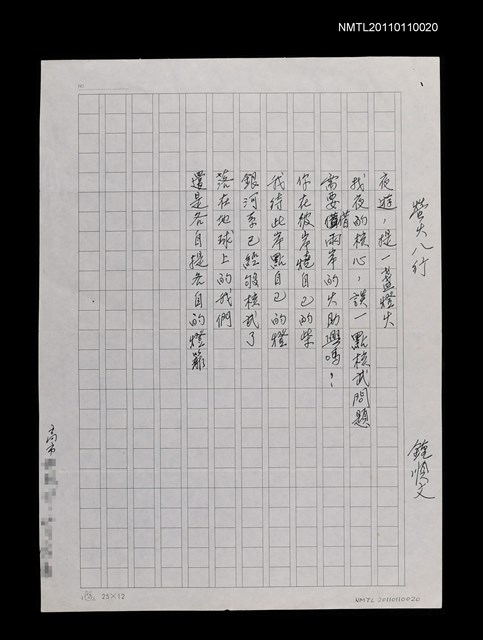 NMTL20110110020
螢火八行
鍾順文
夜遊，提一盞燈火
找夜的核心，談一點核武問題
需要借兩岸的火助興嗎？
你在彼岸燒自己的柴
我待此岸點自己的燈
銀河系已經够核武了
落在地球上的我們
還是各自提各自的燈籠
高市
25×12
NMTL 20110110020